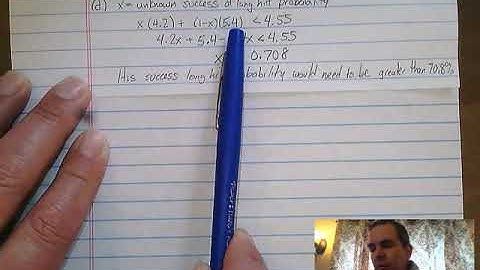 (d) x = unknown success of long hit probability
x(4.2) + (1-x)(5.4) < 4.55
4.2x + 5.4 - x < 4.55
x 0.708
His success long hi obability would need to be greater than 70.8%